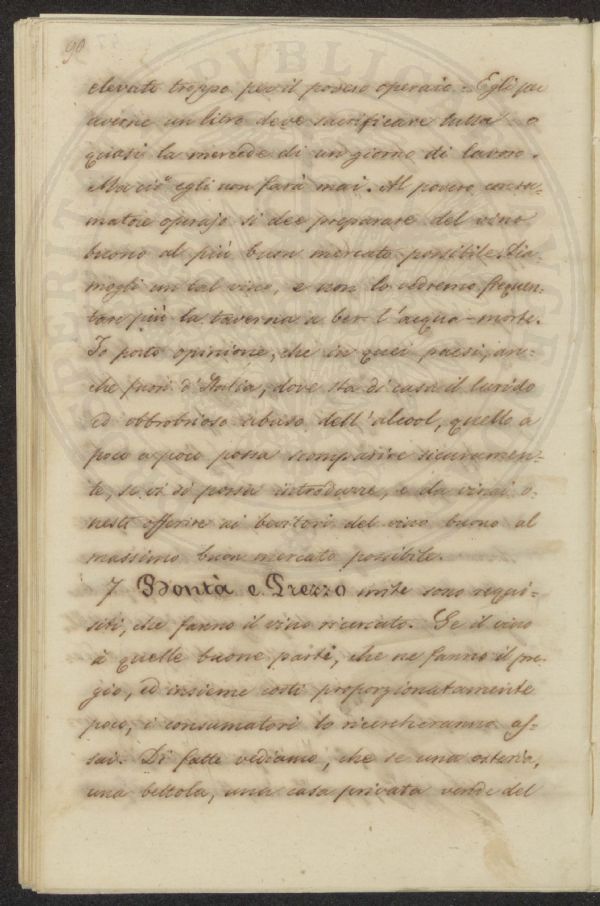 90
elevate troppo per il povero operaio. Egli per
averne un litro deve sacrificare tutta o
quasi la mercede di un giorno di lavoro.
Ma ciò egli non farà mai. Al povero consu-
matore operajo si dee preparare del vino
buono al più buon mercato possibile. Dia-
mogli un tal vino, e non lo vedremo frequen-
tare più la taverna a ber l'acqua-morte.
Io porto opinione, che in quei paesi, an-
che fuori d'Italia, dove sta di casa il lurido
ed obbrobrioso abuso dell'alcool, quello a
poco a poco possa scomparire sicuramen-
te, se vi si possa introdurre, e da vinai o-
nesti offerire ai bevitori del vino buono al
massimo buon mercato possibile.
7 Bontà e Prezzo mite sono requi-
siti, che fanno il vino ricercato. Se il vino
à quelle buone parti, che ne fanno il pre-
gio, ed insieme costi proporzionatamente
poco, i consumatori lo ricercheranno as-
sai. Di fatte vediamo, che se una osteria,
una bettola, una casa privata vende del
PVBLICA